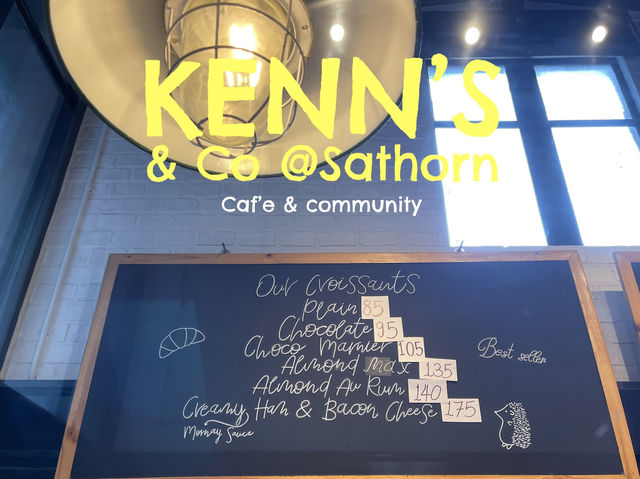 KENN'S
& Co @Sathorn
Caf'e & community
Our Croissants
Plain 85
Chocolate 95
Choco Marnier 105
Almond max 135
Almond Au Rum 140
Creamy Ham & Bacon Cheese 175
Mornay Sauce
Best seller